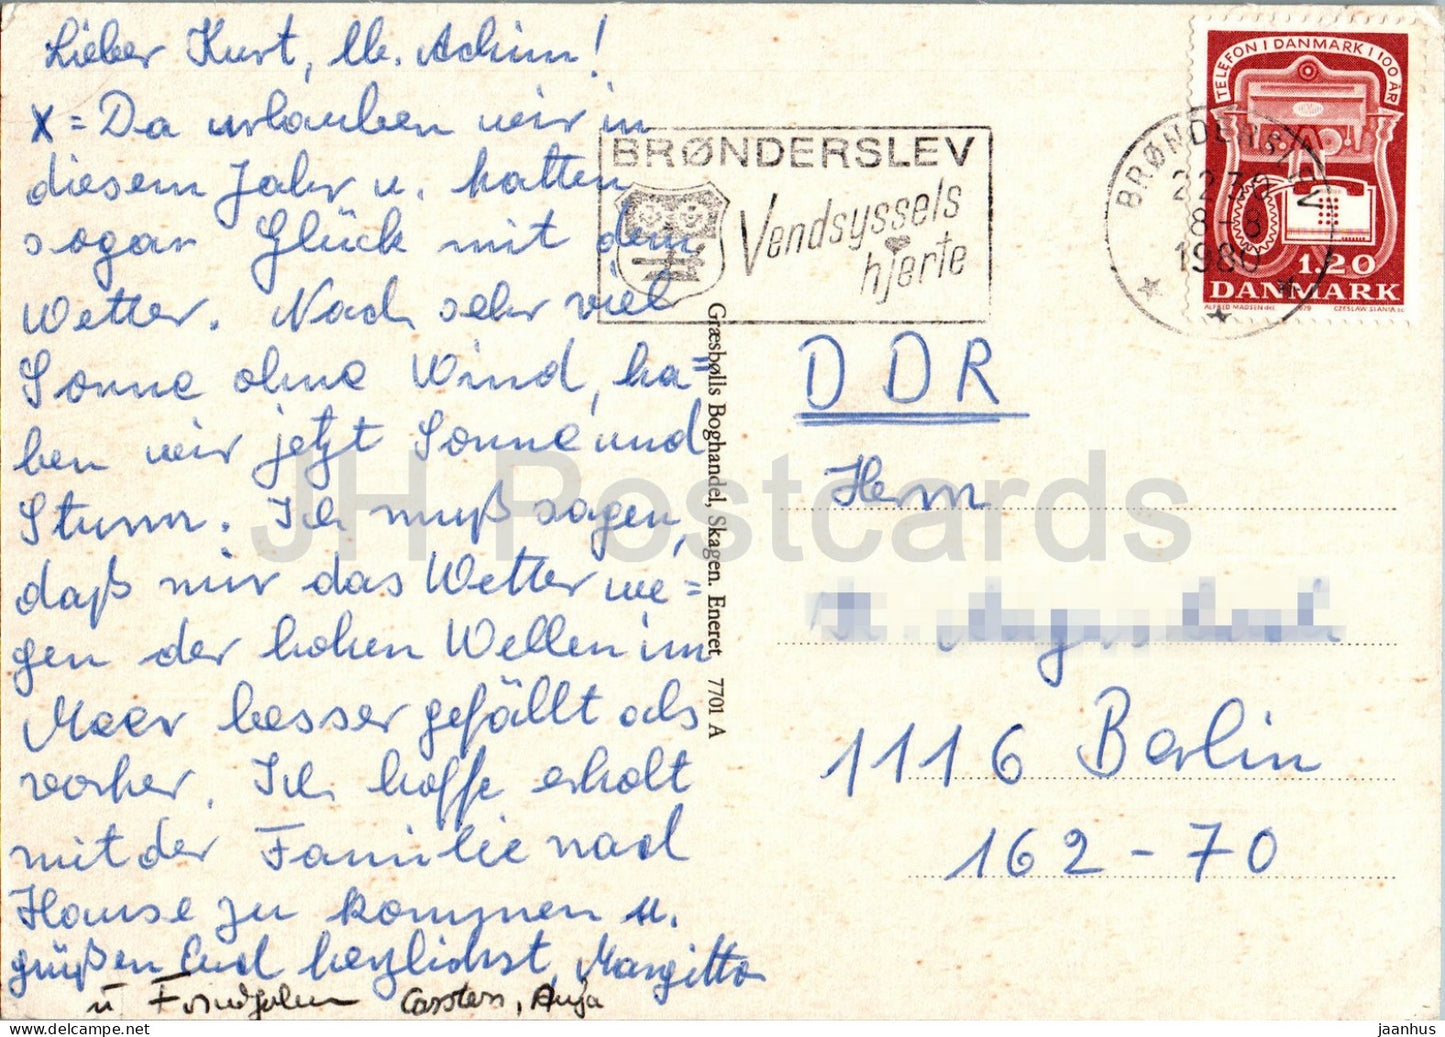 Lieber Kurt, lb. Achim!
x = Da urlauben wir in
diesem Jahr u. hatten
sogar Glück mit dem
Wetter. Nach sehr viel
Sonne ohne Wind, ha=
ben wir jetzt Sonne und
Sturm. Ich muß sagen,
daß mir das Wetter we=
gen der hohen Wellen im
Meer besser gefällt als
vorher. Ich hoffe erholt
mit der Familie nach
Hause zu kommen u.
grüßen Euch herzlichst, Margitta
u Carsten, Anja
BRØNDERSLEV
Vendsyssels
hjerte
BRØNDERSLEV
1980
TELEFON I DANMARK I 100 ÅR
1.20
DANMARK
ALFRED MADSEN del. 1979 CZESLAW SLANIA sc.
Græsbølls Boghandel, Skagen. Eneret 7701 A
DDR
Herrn
1116 Berlin
162-70
JH Postcards
jaanhus